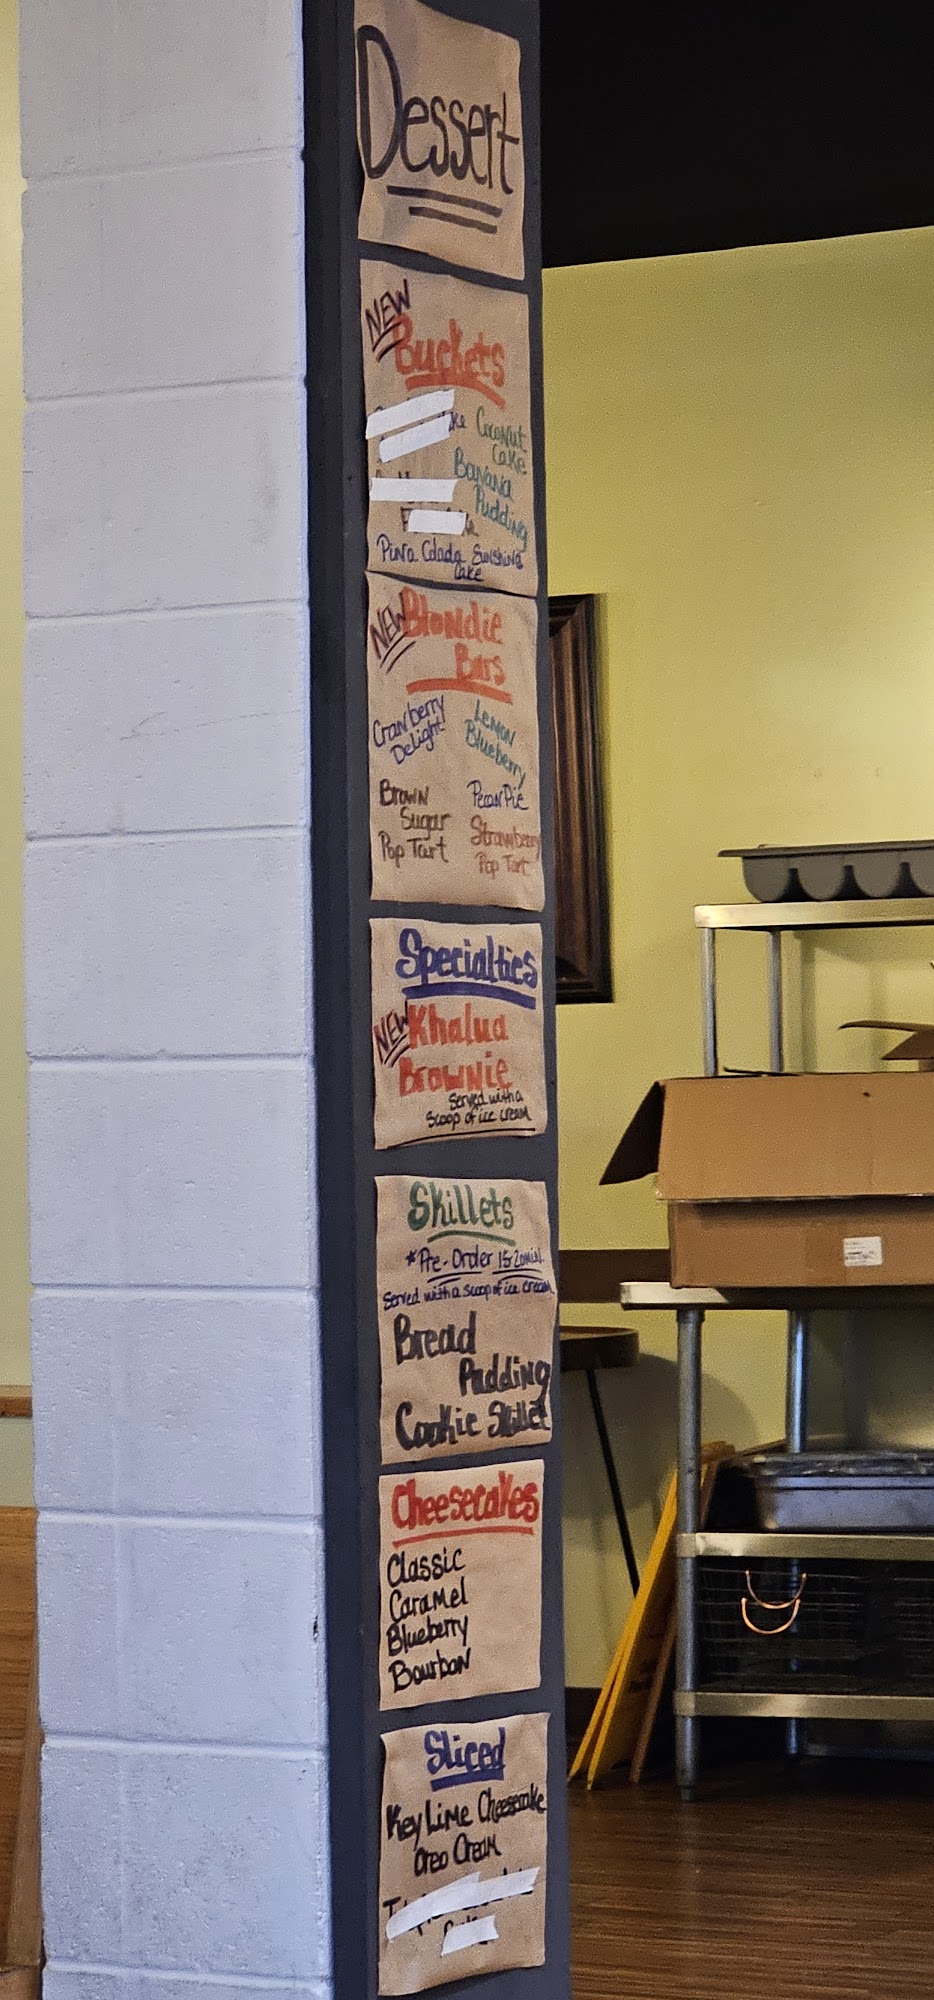 Dessert
NEW
Buckets
Coconut
Cake
Banana
Pudding
Pina Colada Sunshine
Cake
NEW
Blondie
Bars
Cranberry
Delight
Lemon
Blueberry
Brown
Sugar
Pop Tart
Pecan Pie
Strawberry
Pop Tart
Specialties
NEW
Khalua
Brownie
Served with a
scoop of ice cream
Skillets
*Pre-Order 15-20min.
Served with a scoop of ice cream
Bread
Pudding
Cookie Skillet
Cheesecakes
Classic
Caramel
Blueberry
Bourbon
Sliced
Key Lime Cheesecake
Oreo Cream